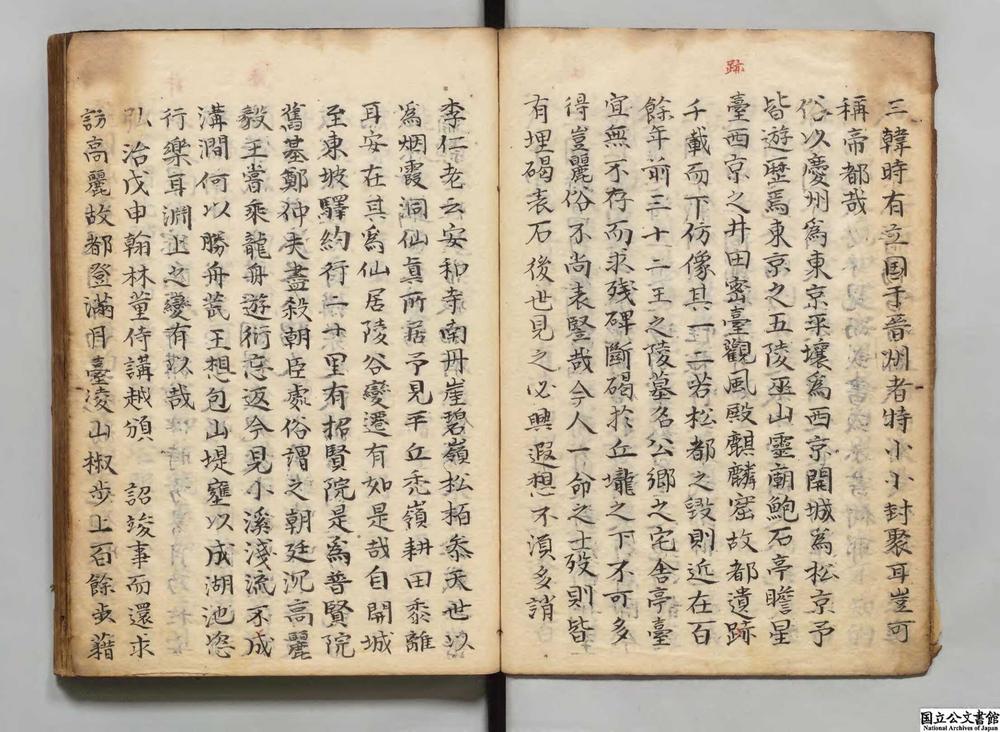 三韓時有立国于晋州者特小小封聚耳豈可
稱帝都哉
俗以慶州為東京平壤為西京開城為松京予
皆遊歴焉東京之五陵巫山靈廟鮑石亭瞻星
臺西京之井田密臺觀風殿麒麟窟故都遺跡
千載而下仿像其一二若松都之毀則近在百
餘年前三十二王之陵墓名公卿之宅舍亭臺
宜無不存而求残碑斷碣於丘壠之下不可多
得豈麗俗不尚表竪哉今人一命之士歿則皆
有埋碣表石後世見之必興遐想不湏多誚
跡
李仁老云安和寺南丹崖碧嶺松栢叅天世以
為烟霞洞仙真所居予見平丘禿嶺耕田黍離
耳安在其為仙居陵谷變遷有如是哉自開城
至東坡驛約行二十里有招賢院是為普賢院
舊基鄭仲夫盡殺朝臣處俗謂之朝廷沉高麗
毅王嘗乘龍舟遊衍忘返今見小溪淺流不成
溝澗何以勝舟荒王想包山堤壅以成湖池恣
行樂耳淵上之變有以哉
弘治戊申翰林董侍講越頒 詔竣事而還求
訪高麗故都登滿月臺凌山椒步上百餘步藉
国立公文書館
National Archives of Japan